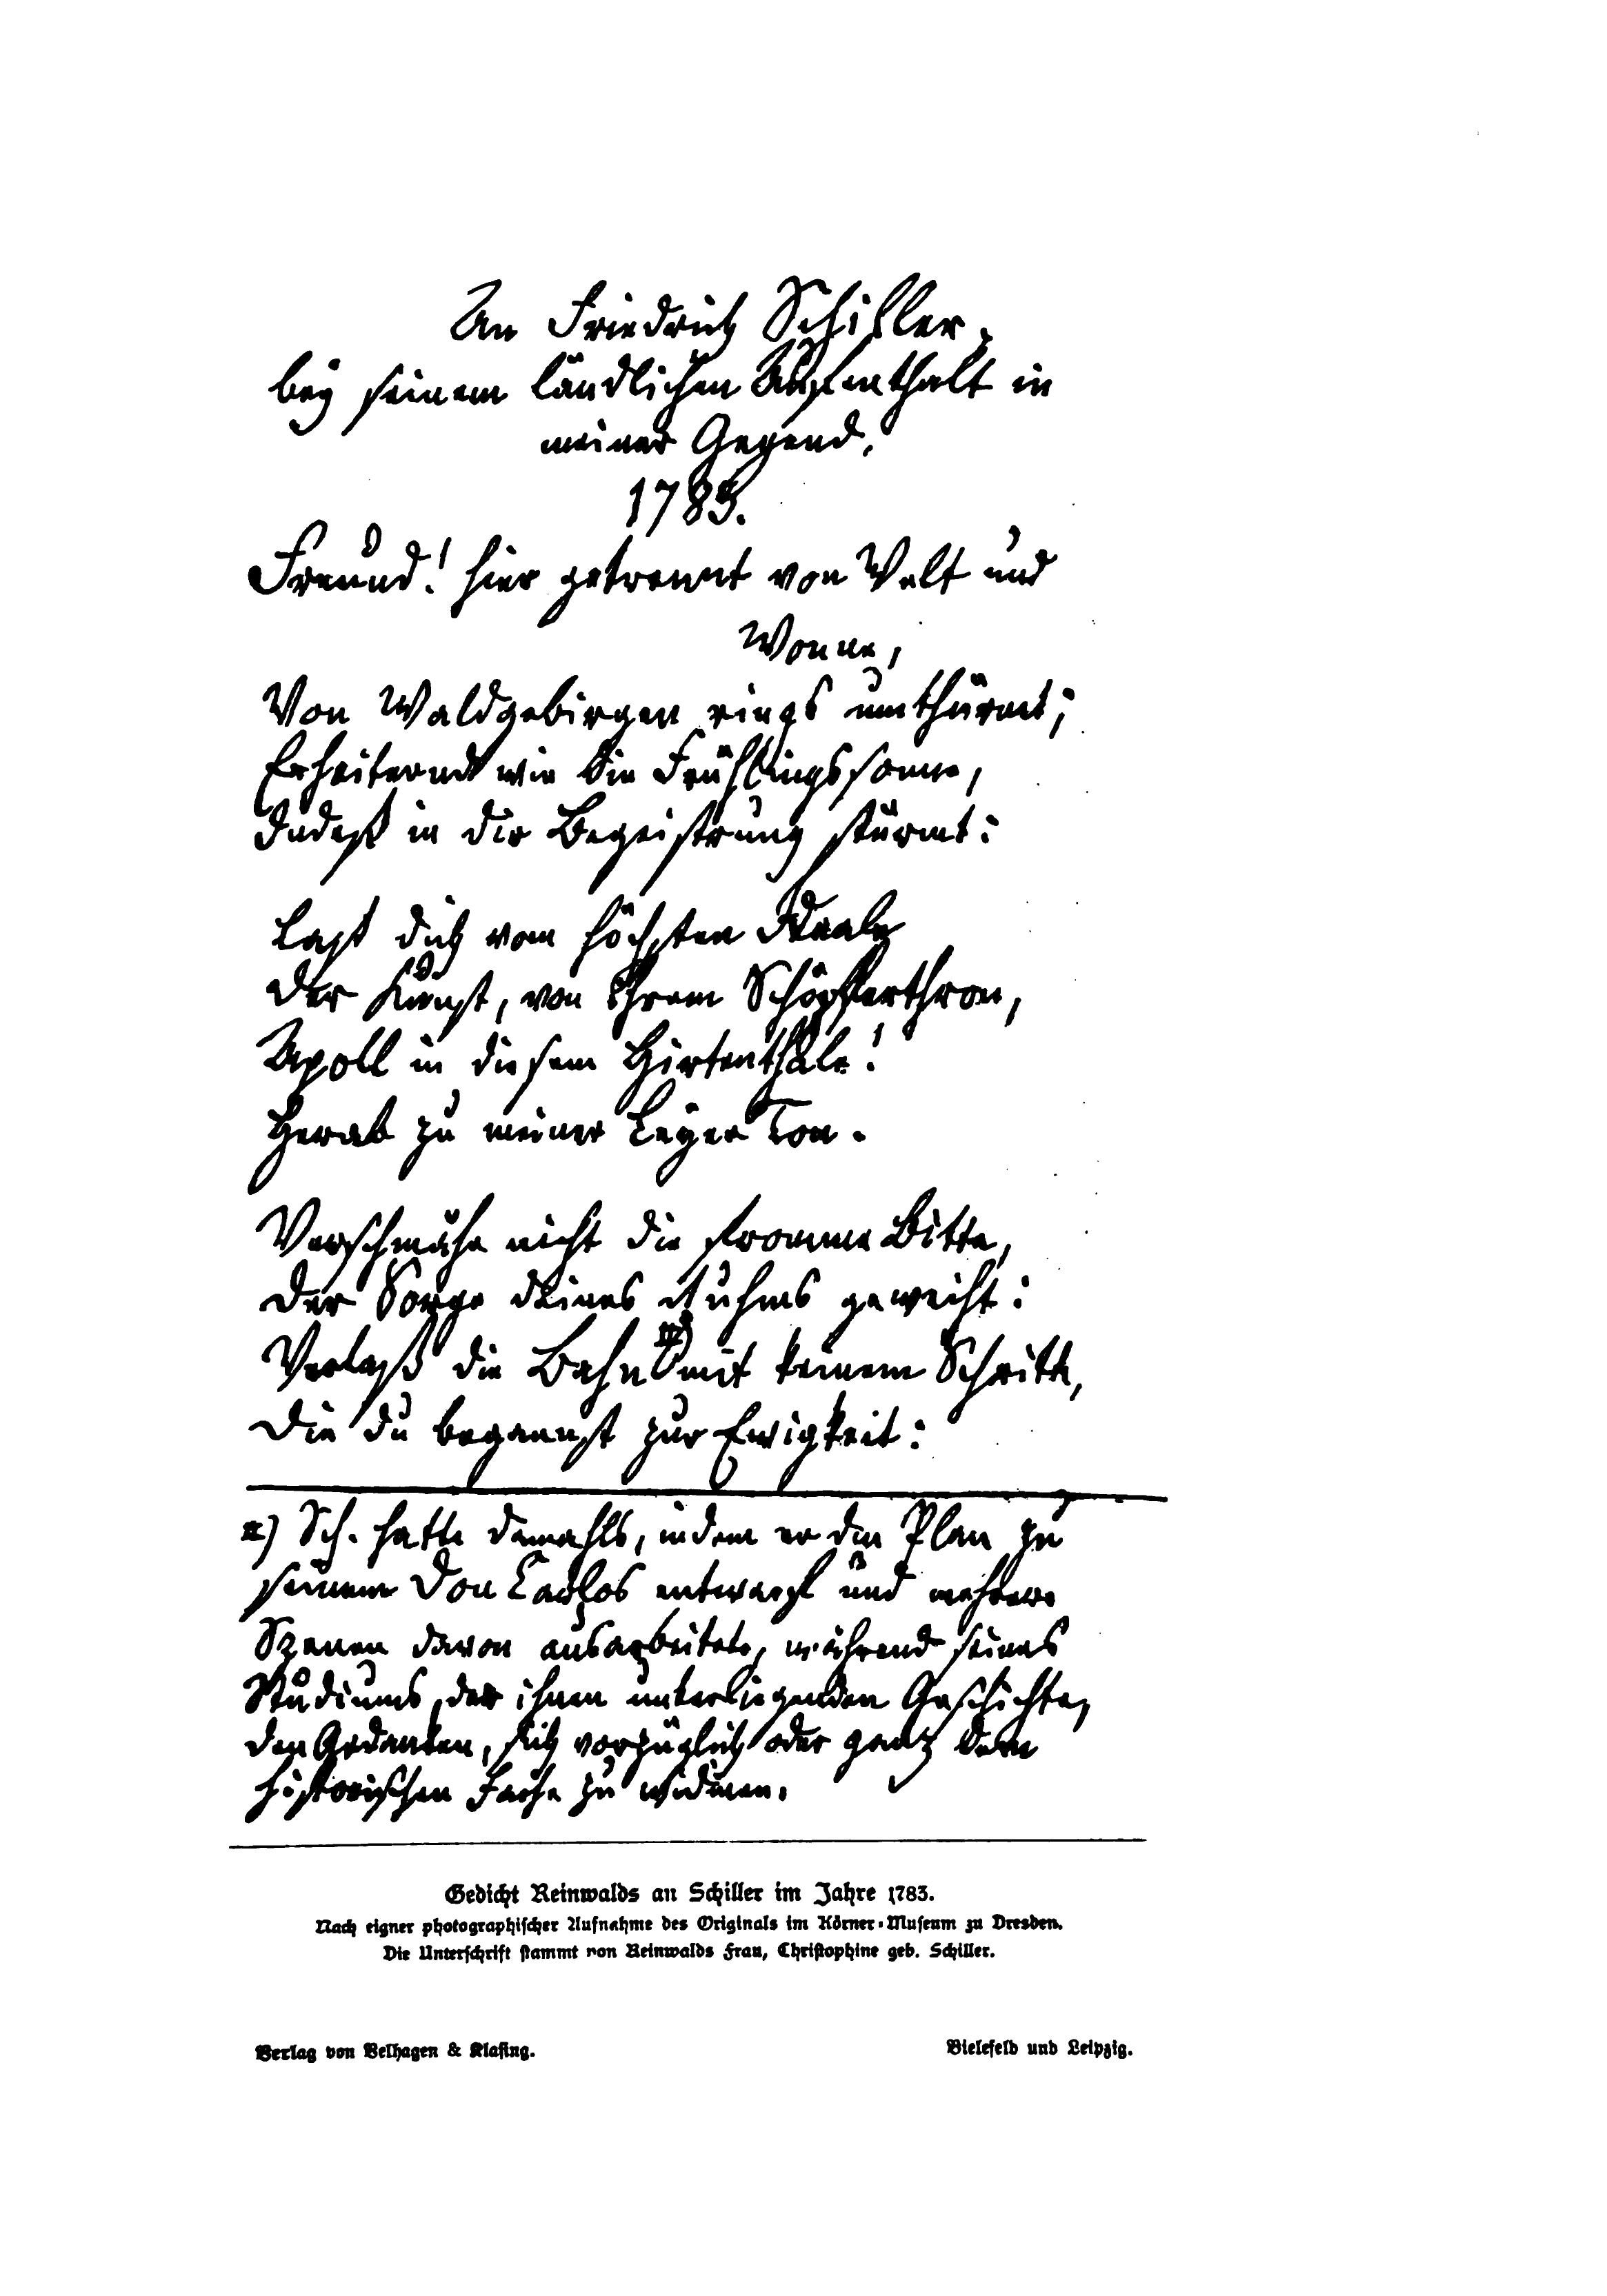 An Friedrich Schiller,
bey seinem ländlichen Aufenthalt in
meiner Gegend,
1783.
Freund! hier getrennt von Welt und
Wonne,
Von Waldgebirgen rings umthürmt;
Erheiternd wie die Frühlingssonne,
Indeß in dir Begeistrung stürmt:
Lass dich vom höchsten Ideale
Der Kunst, von Ihrem Schöpferthron,
Apoll in diesem Hirtenthale!
Herab zu meiner Leyer Ton.
Verschmähe nicht die fromme Bitte,
Der Sorge deines Ruhms geweiht:
Verlaß die Bahn *) mit keinem Schritte,
Die du begannst zur Ewigkeit:
*) Sch. hatte damahls, indem er den Plan zu
seinem Don Carlos entwarf und mehrere
Szenen davon ausarbeitete, während seines
Studiums der ihnen unterliegenden Geschichte,
den Gedanken, sich vorzüglich oder ganz dem
historischen Fache zu widmen.
Gedicht Reinwalds an Schiller im Jahre 1783.
Nach eigner photographischer Aufnahme des Originals im Körner-Museum zu Dresden.
Die Unterschrift stammt von Reinwalds Frau, Christophine geb. Schiller.
Verlag von Velhagen & Klasing.
Bielefeld und Leipzig.